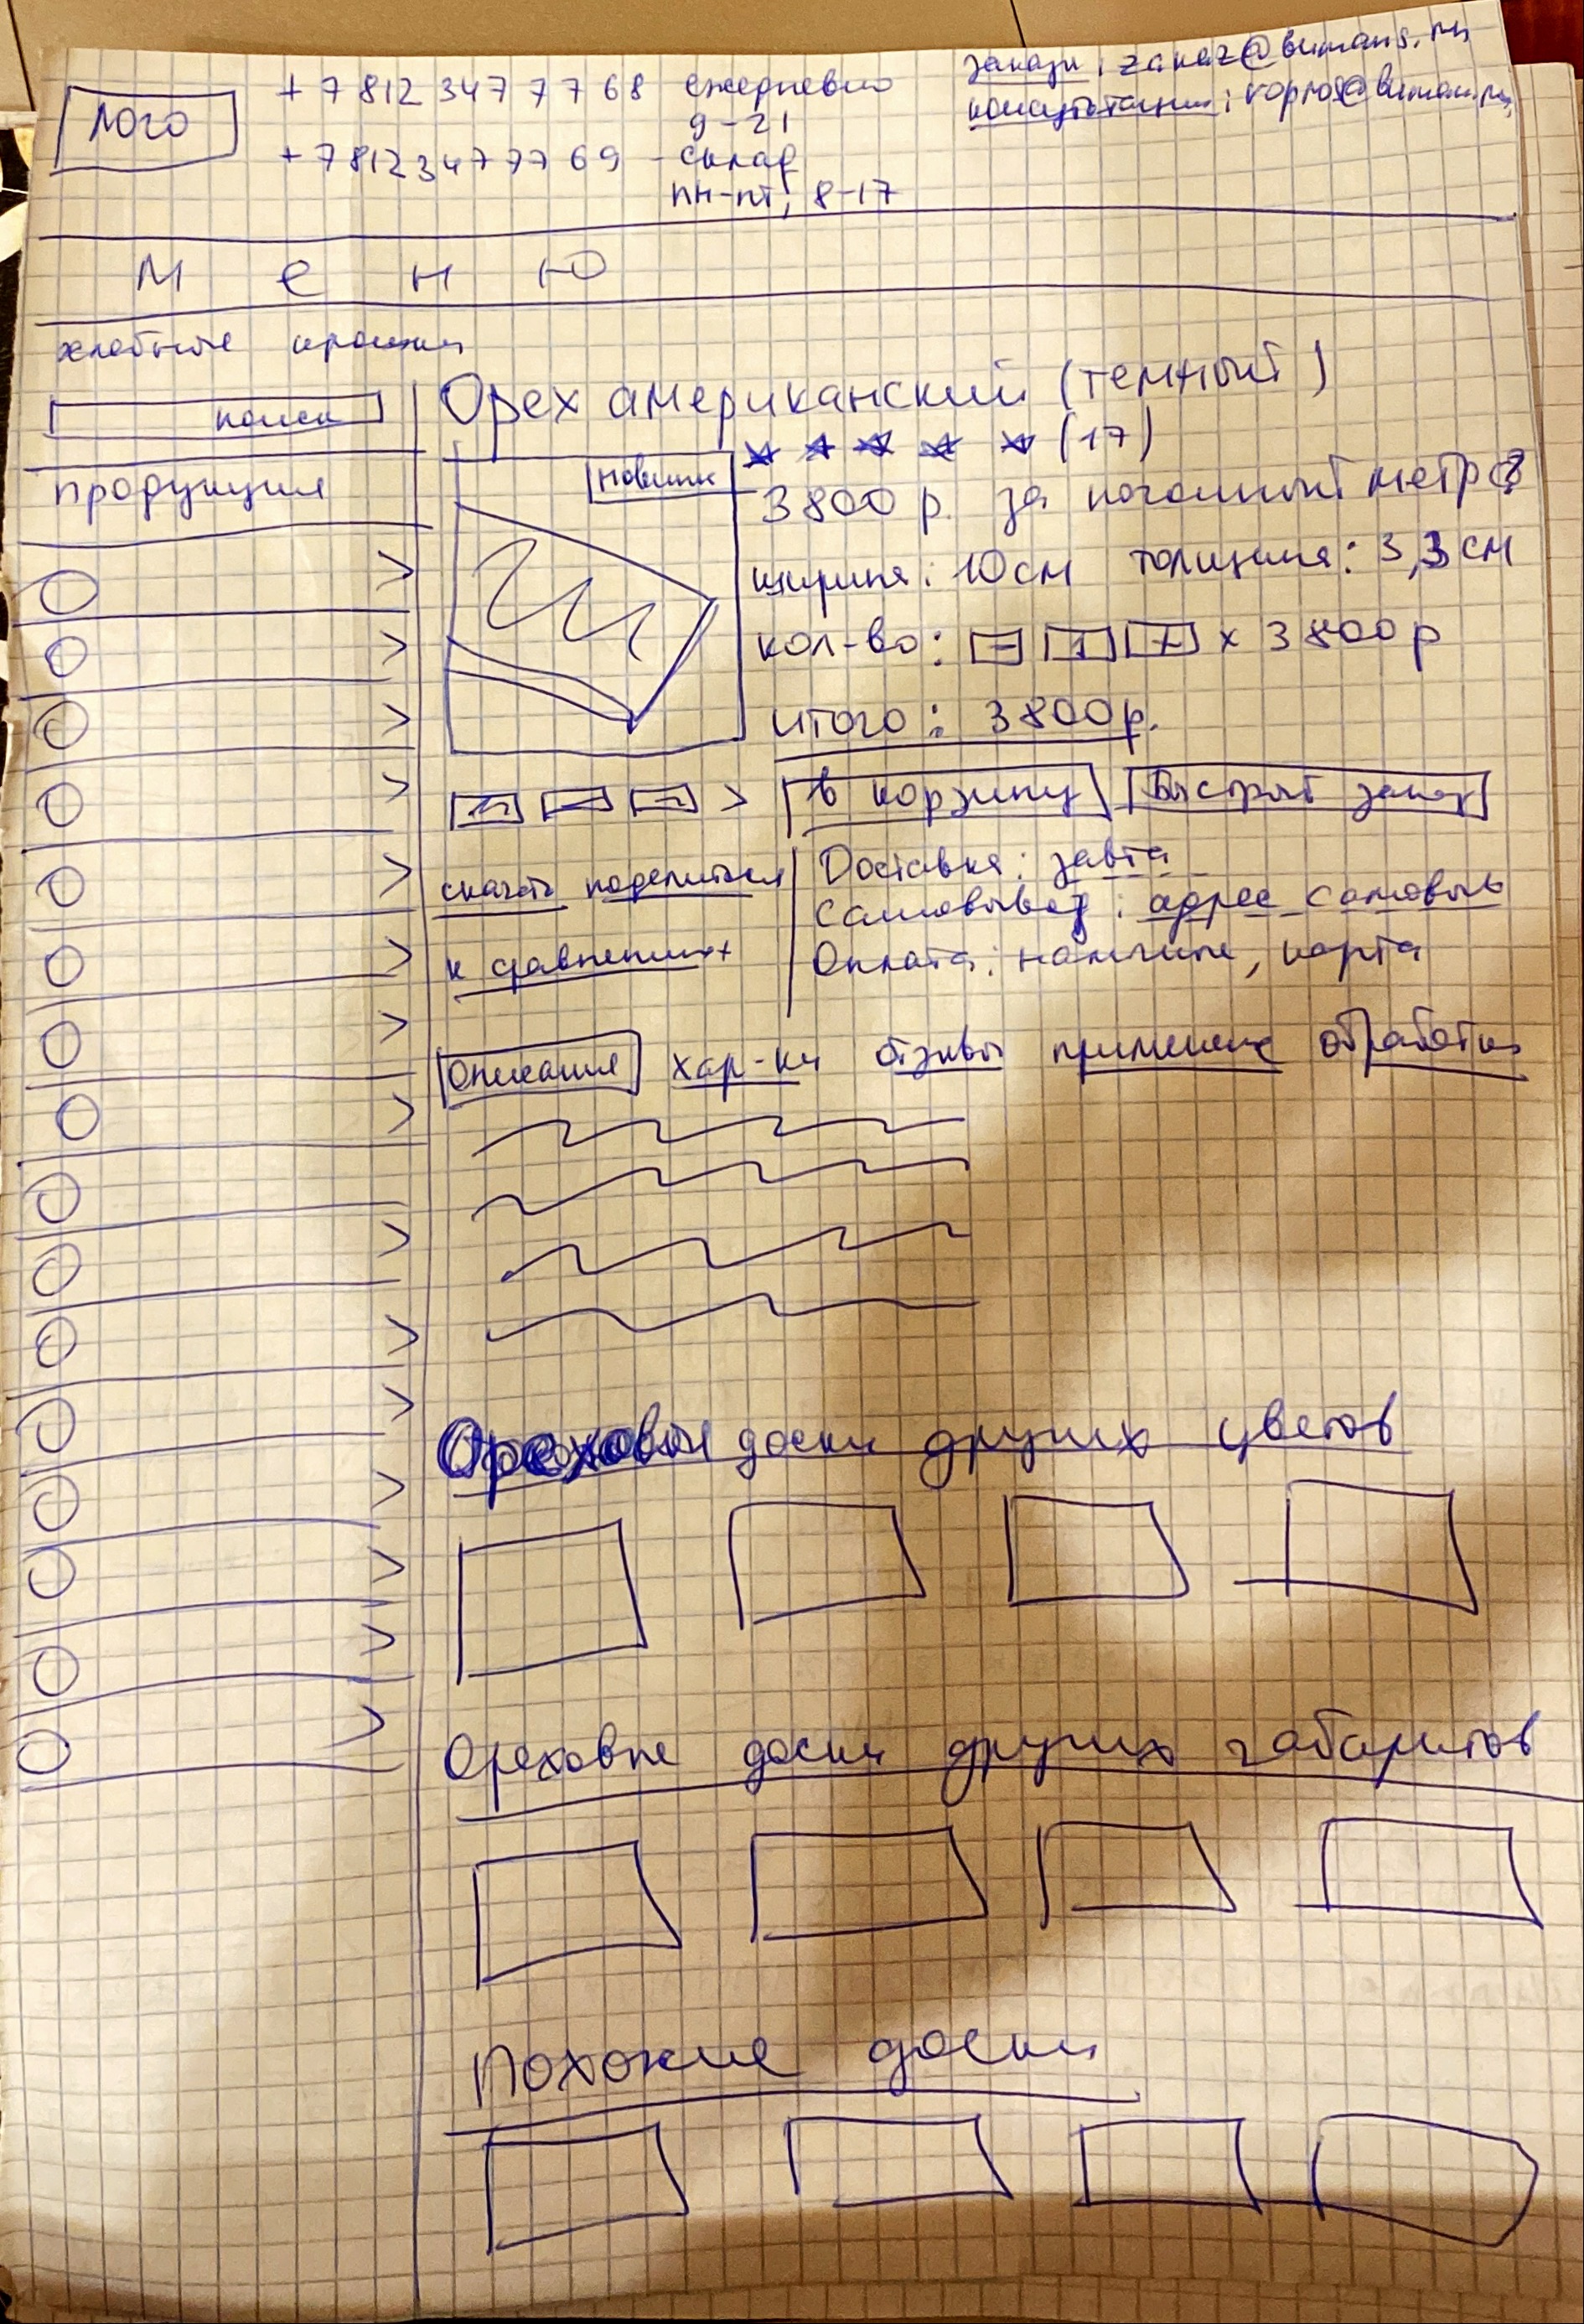 лого
+ 7 812 347 77 68 ежедневно
9-21
+ 7 812 347 77 69 - склад
пн-пт, 8-17
заказы: zakaz@
консультации:
меню
хлебные крошки
поиск
продукция
Орех американский (темный)
(17)
новинк
3800 р. за погонный метр
ширина: 10 см толщина: 3,3 см
кол-во: - 1 + х 3800 р
итого: 3800 р.
в корзину Быстрый заказ
>
скачать поделиться
к сравнению
Доставка: завта
Самовывоз: адрес самовыв
Оплата: наличные, карта
Описание хар-ки отзывы применение обработка
Ореховые доски других цветов
Ореховые доски других габаритов
Похожие доски